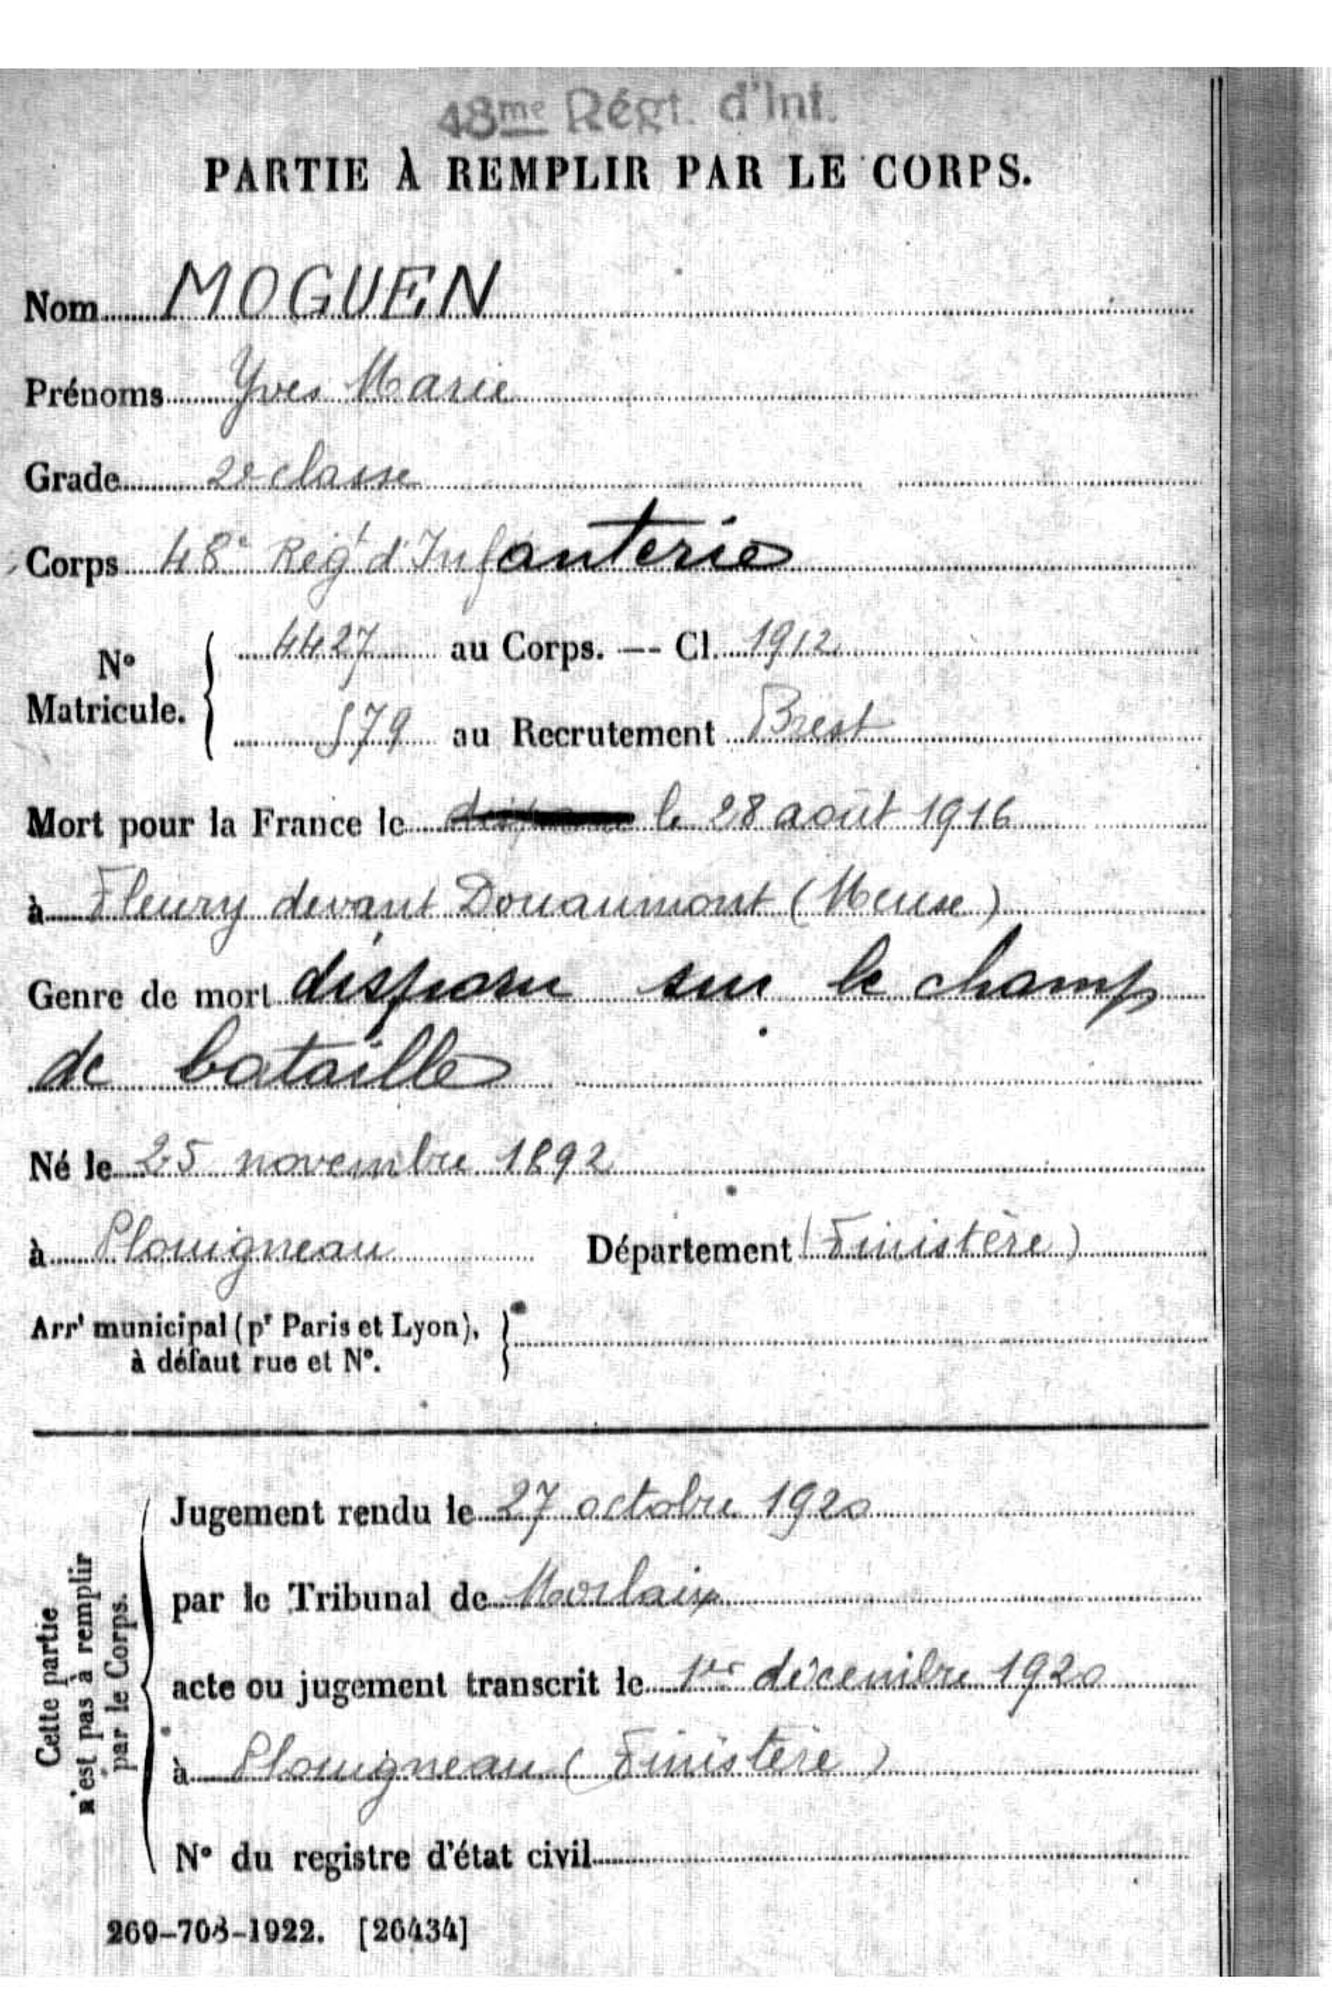 48me Régt. d'Inf.
PARTIE À REMPLIR PAR LE CORPS.
Nom MOGUEN
Prénoms Yves Marie
Grade 2e classe
Corps 48e Régt d'Infanterie
No Matricule. 4427 au Corps. — Cl. 1912
579 au Recrutement Brest
Mort pour la France le le 28 août 1916
à Fleury devant Douaumont (Meuse)
Genre de mort disparu sur le champ
de bataille
Né le 25 novembre 1892
à Plouigneau Département (Finistère)
Arrt municipal (pr Paris et Lyon),
à défaut rue et No.
Cette partie
n'est pas à remplir
par le Corps.
Jugement rendu le 27 octobre 1920
par le Tribunal de Morlaix
acte ou jugement transcrit le 1er décembre 1920
à Plouigneau (Finistère)
No du registre d'état civil
269-708-1922. [26434]